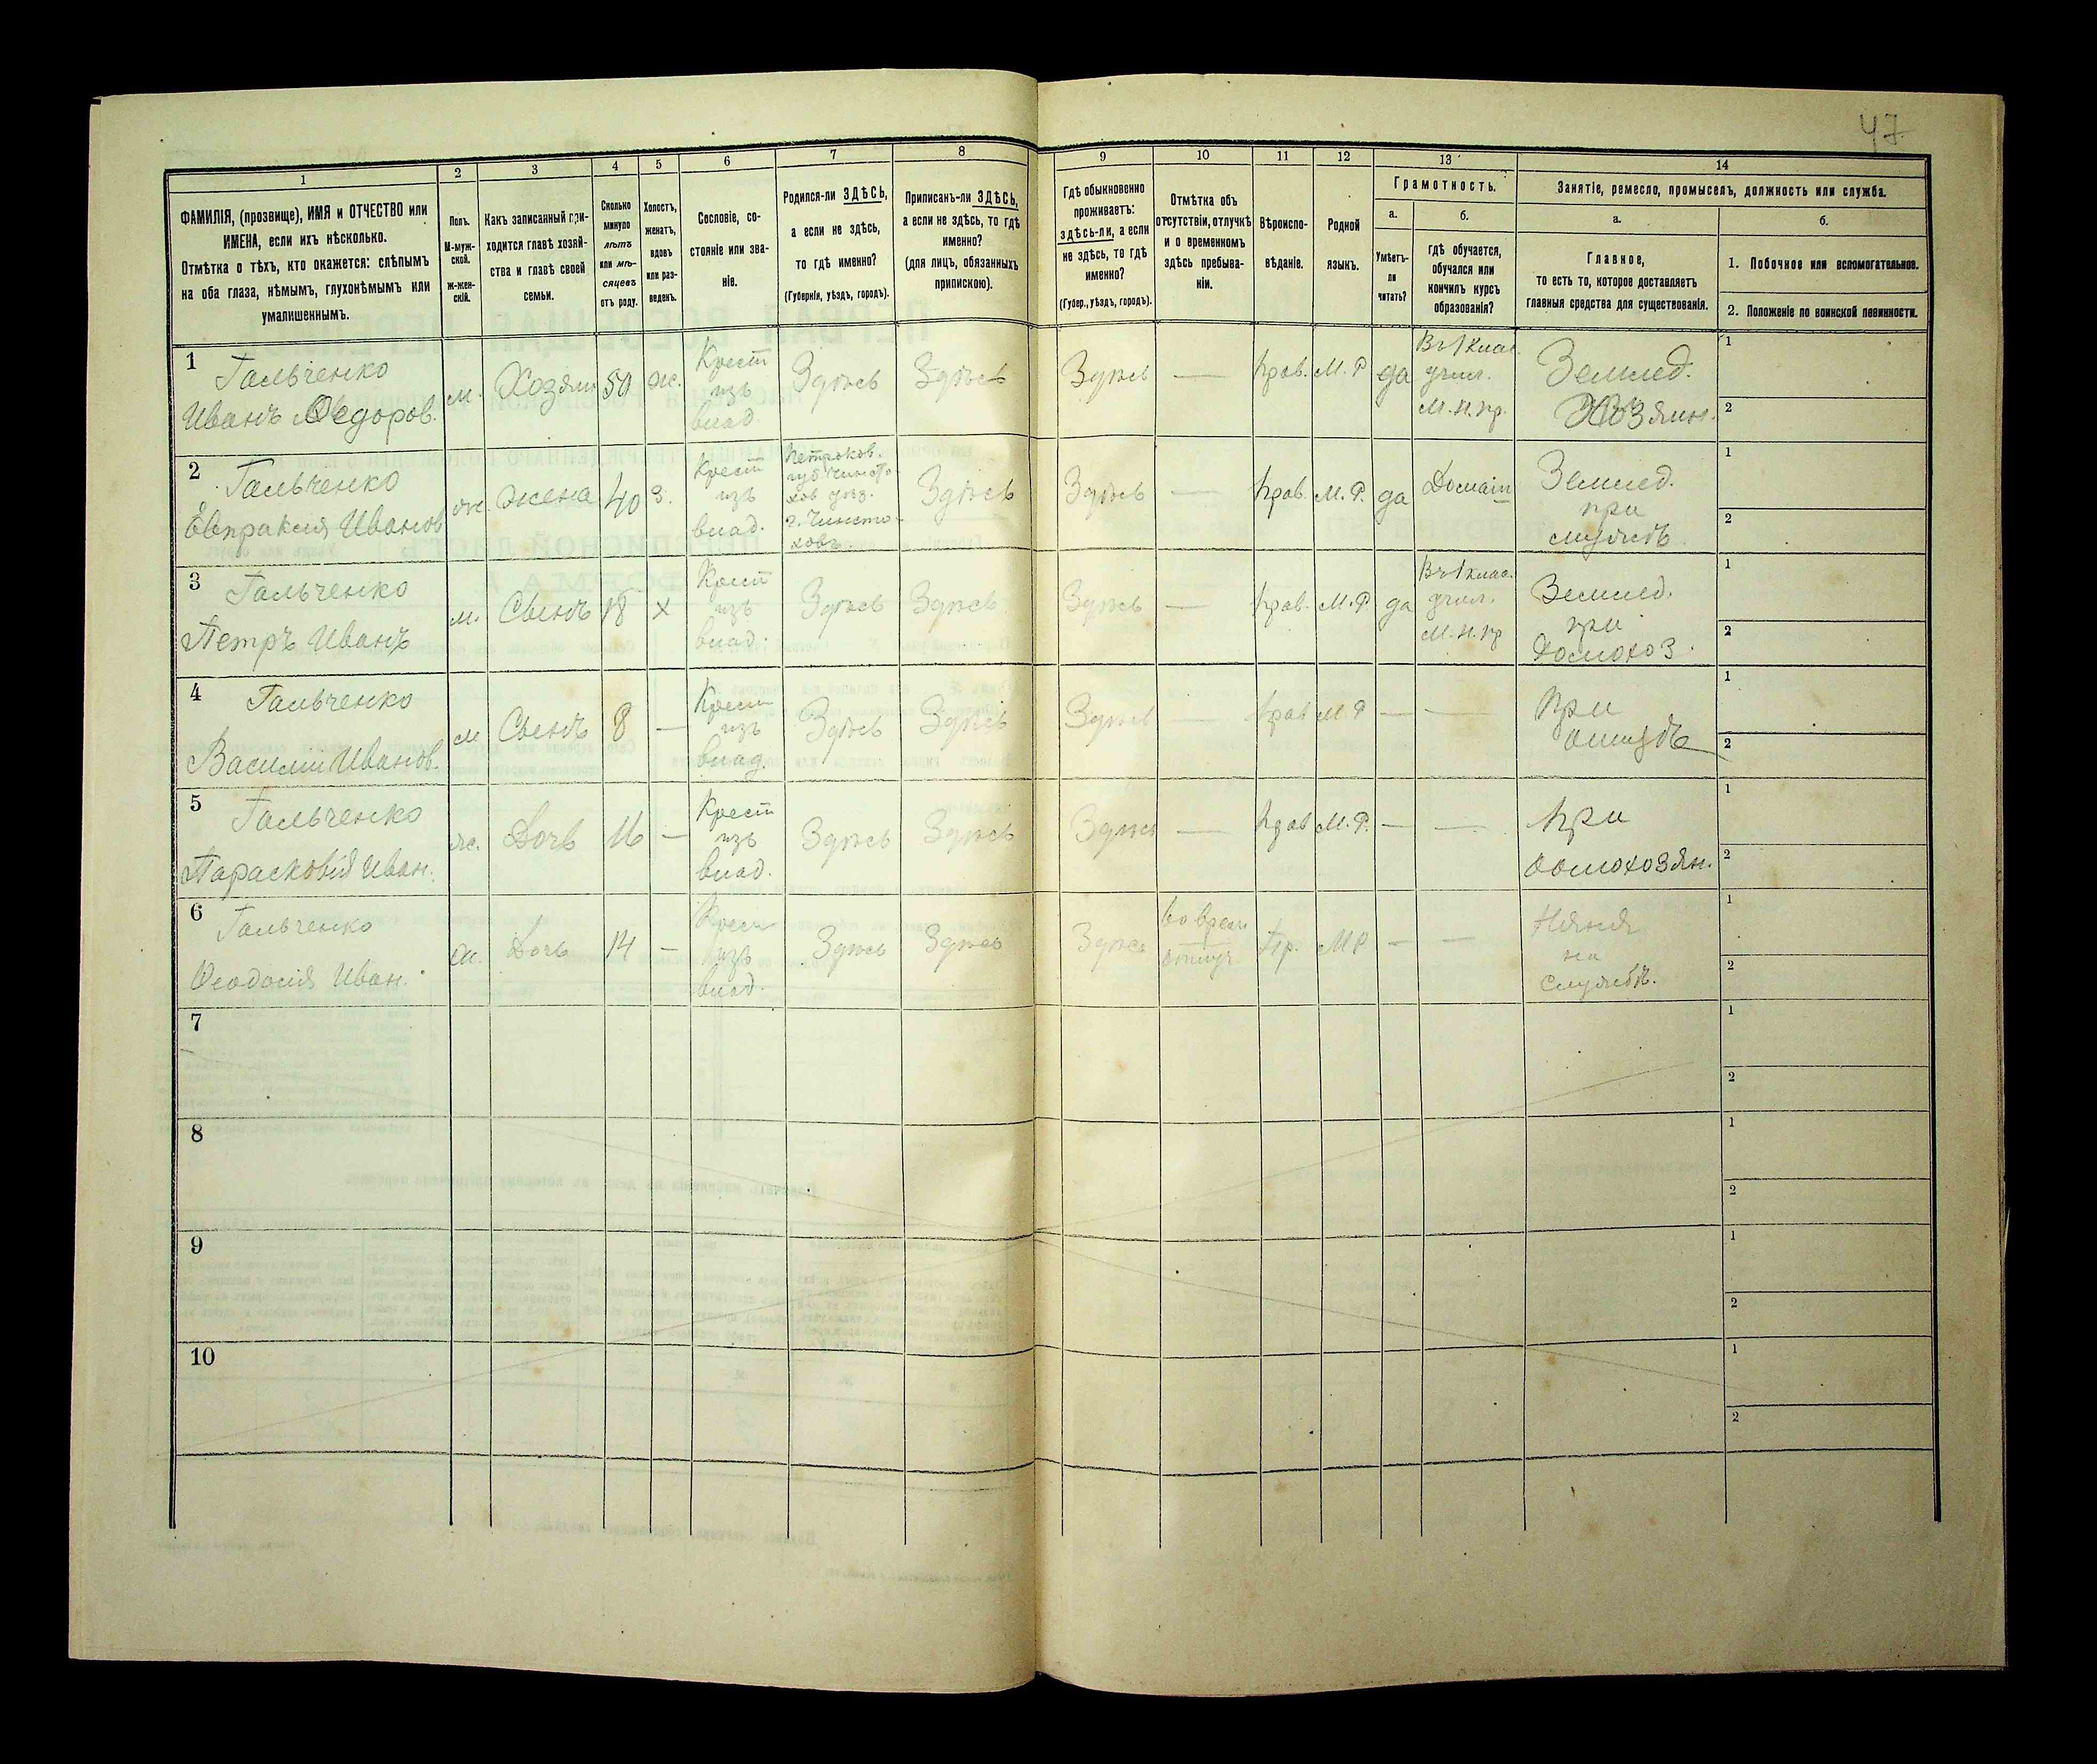 47
1
2
3
4
5
6
7
8
9
10
11
12
13
14
ФАМИЛІЯ, (прозвище), ИМЯ и ОТЧЕСТВО или
ИМЕНА, если ихъ нѣсколько.
Отмѣтка о тѣхъ, кто окажется: слѣпымъ
на оба глаза, нѣмымъ, глухонѣмымъ или
умалишеннымъ.
Полъ.
М-муж-
ской.
Ж-жен-
скій.
Какъ записанный при-
ходится главѣ хозяй-
ства и главѣ своей
семьи.
Сколько
минуло
лѣтъ
или мѣ-
сяцевъ
отъ роду.
Холостъ,
женатъ,
вдовъ
или раз-
веденъ.
Сословіе, со-
стояніе или зва-
ніе.
Родился-ли ЗДѢСЬ,
а если не здѣсь,
то гдѣ именно?
(Губернія, уѣздъ, городъ).
Приписанъ-ли ЗДѢСЬ,
а если не здѣсь, то гдѣ
именно?
(для лицъ, обязанныхъ
припискою).
Гдѣ обыкновенно
проживаетъ:
здѣсь-ли, а если
не здѣсь, то гдѣ
именно?
(Губер., уѣздъ, городъ).
Отмѣтка объ
отсутствіи, отлучкѣ
и о временномъ
здѣсь пребыва-
ніи.
Вѣроиспо-
вѣданіе.
Родной
языкъ.
Грамотность.
а.
Умѣетъ-
ли
читать?
б.
гдѣ обучается,
обучался или
кончилъ курсъ
образованія?
Занятіе, ремесло, промыселъ, должность или служба.
а.
Главное,
то есть то, которое доставляетъ
главныя средства для существованія.
б.
1. Побочное или вспомогательное.
2. Положеніе по воинской повинности.
1
Гальченко
Иванъ Ѳедоров.
м.
Хозяин
50
ж.
Крест
изъ
влад.
Здѣсь
Здѣсь
Здѣсь
—
Прав.
М. Р
да
Въ 1 клас.
учил.
М. н. пр.
Землед.
Хозяин.
1
2
2
Гальченко
Евпраксия Иванов
ж.
Жена
40
З.
Крест
изъ
влад.
Петроков.
губ Чинсто-
хов уѣз.
г. Чинсто-
ховъ.
Здѣсь
Здѣсь
—
Прав.
М. Р.
да
Домаш
Землед.
при
мужѣ
1
2
3
Гальченко
Петръ Иванъ
м.
Сынъ
18
х
Крест
изъ
влад.
Здѣсь
Здѣсь
Здѣсь
—
Прав.
М. Р
да
Въ 1 клас.
учил.
М. н. пр
Землед.
при
домохоз.
1
2
4
Гальченко
Василий Иванов.
м
Сынъ
8
—
Крест
изъ
влад.
Здѣсь
Здѣсь
Здѣсь
—
Прав
М. Р
—
—
При
отцѣ
1
2
5
Гальченко
Парасковія Иван.
ж.
Дочь
16
—
Крест
изъ
влад.
Здѣсь
Здѣсь
Здѣсь
—
Прав
М. Р.
—
—
При
домохозян.
1
2
6
Гальченко
Ѳеодосія Иван.
ж.
Дочь
14
—
Крест
изъ
влад.
Здѣсь
Здѣсь
Здѣсь
Во врем
отлуч
Пр.
М Р
—
—
Няня
на
службѣ.
1
2
7
1
2
8
1
2
9
1
2
10
1
2